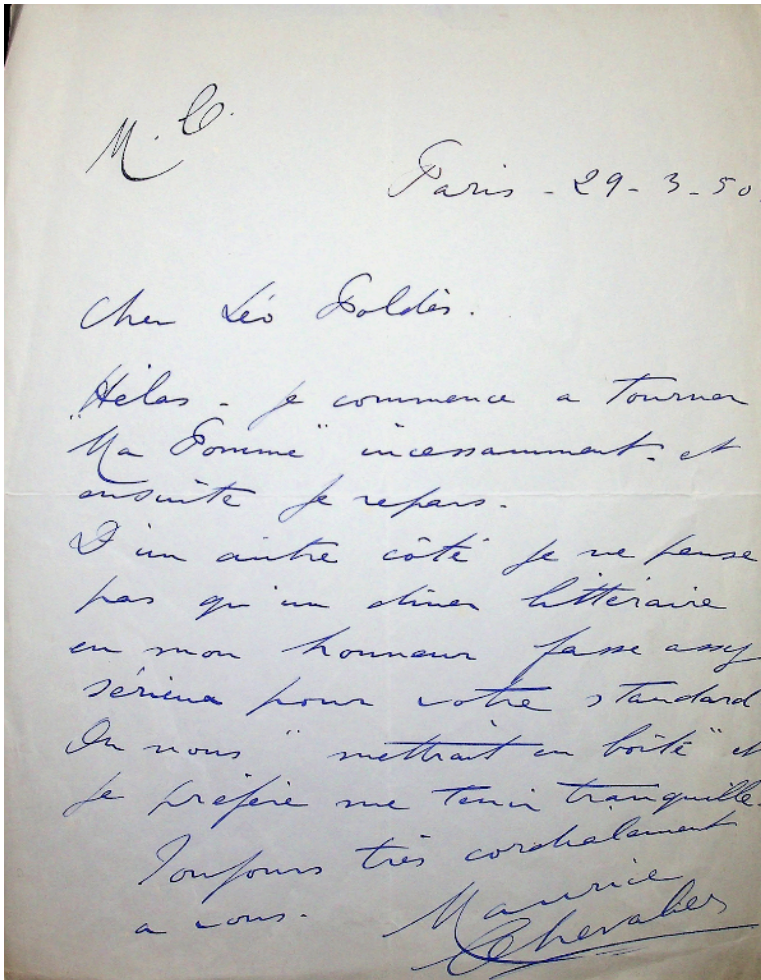 M. C.
Paris - 29 - 3 - 50.
Cher Léo Poldès.
Hélas - je commence a tourner
"Ma Pomme" incessamment - et
ensuite je repars.
D'un autre côté je ne pense
pas qu'un diner littéraire
en mon honneur fasse assez
sérieux pour votre standard
On nous "mettrait en boîte" et
je préfère me tenir tranquille.
Toujours très cordialement
a vous.
Maurice
Chevalier